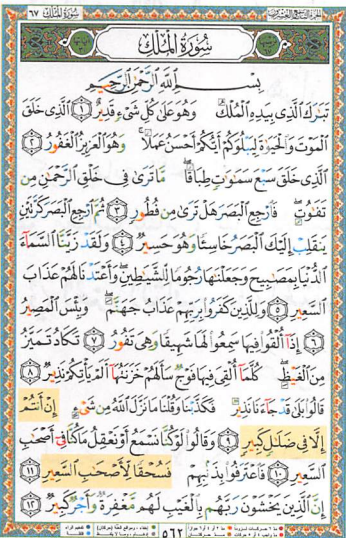 سُورَةُ المُلْكِ ٦٧
الجزء التاسع والعشرون
سُورَةُ المُلْكِ
بِسْمِ اللَّهِ الرَّحْمَٰنِ الرَّحِيمِ
تَبَارَكَ الَّذِي بِيَدِهِ الْمُلْكُ وَهُوَ عَلَىٰ كُلِّ شَيْءٍ قَدِيرٌ ۝١ الَّذِي خَلَقَ
الْمَوْتَ وَالْحَيَاةَ لِيَبْلُوَكُمْ أَيُّكُمْ أَحْسَنُ عَمَلًا ۚ وَهُوَ الْعَزِيزُ الْغَفُورُ ۝٢
الَّذِي خَلَقَ سَبْعَ سَمَاوَاتٍ طِبَاقًا ۖ مَّا تَرَىٰ فِي خَلْقِ الرَّحْمَٰنِ مِن
تَفَاوُتٍ ۖ فَارْجِعِ الْبَصَرَ هَلْ تَرَىٰ مِن فُطُورٍ ۝٣ ثُمَّ ارْجِعِ الْبَصَرَ كَرَّتَيْنِ
يَنقَلِبْ إِلَيْكَ الْبَصَرُ خَاسِئًا وَهُوَ حَسِيرٌ ۝٤ وَلَقَدْ زَيَّنَّا السَّمَاءَ
الدُّنْيَا بِمَصَابِيحَ وَجَعَلْنَاهَا رُجُومًا لِّلشَّيَاطِينِ ۖ وَأَعْتَدْنَا لَهُمْ عَذَابَ
السَّعِيرِ ۝٥ وَلِلَّذِينَ كَفَرُوا بِرَبِّهِمْ عَذَابُ جَهَنَّمَ ۖ وَبِئْسَ الْمَصِيرُ
۝٦ إِذَا أُلْقُوا فِيهَا سَمِعُوا لَهَا شَهِيقًا وَهِيَ تَفُورُ ۝٧ تَكَادُ تَمَيَّزُ
مِنَ الْغَيْظِ ۖ كُلَّمَا أُلْقِيَ فِيهَا فَوْجٌ سَأَلَهُمْ خَزَنَتُهَا أَلَمْ يَأْتِكُمْ نَذِيرٌ ۝٨
قَالُوا بَلَىٰ قَدْ جَاءَنَا نَذِيرٌ فَكَذَّبْنَا وَقُلْنَا مَا نَزَّلَ اللَّهُ مِن شَيْءٍ إِنْ أَنتُمْ
إِلَّا فِي ضَلَالٍ كَبِيرٍ ۝٩ وَقَالُوا لَوْ كُنَّا نَسْمَعُ أَوْ نَعْقِلُ مَا كُنَّا فِي أَصْحَابِ
السَّعِيرِ ۝١٠ فَاعْتَرَفُوا بِذَنبِهِمْ فَسُحْقًا لِّأَصْحَابِ السَّعِيرِ ۝١١
إِنَّ الَّذِينَ يَخْشَوْنَ رَبَّهُم بِالْغَيْبِ لَهُم مَّغْفِرَةٌ وَأَجْرٌ كَبِيرٌ ۝١٢
٥٦٢